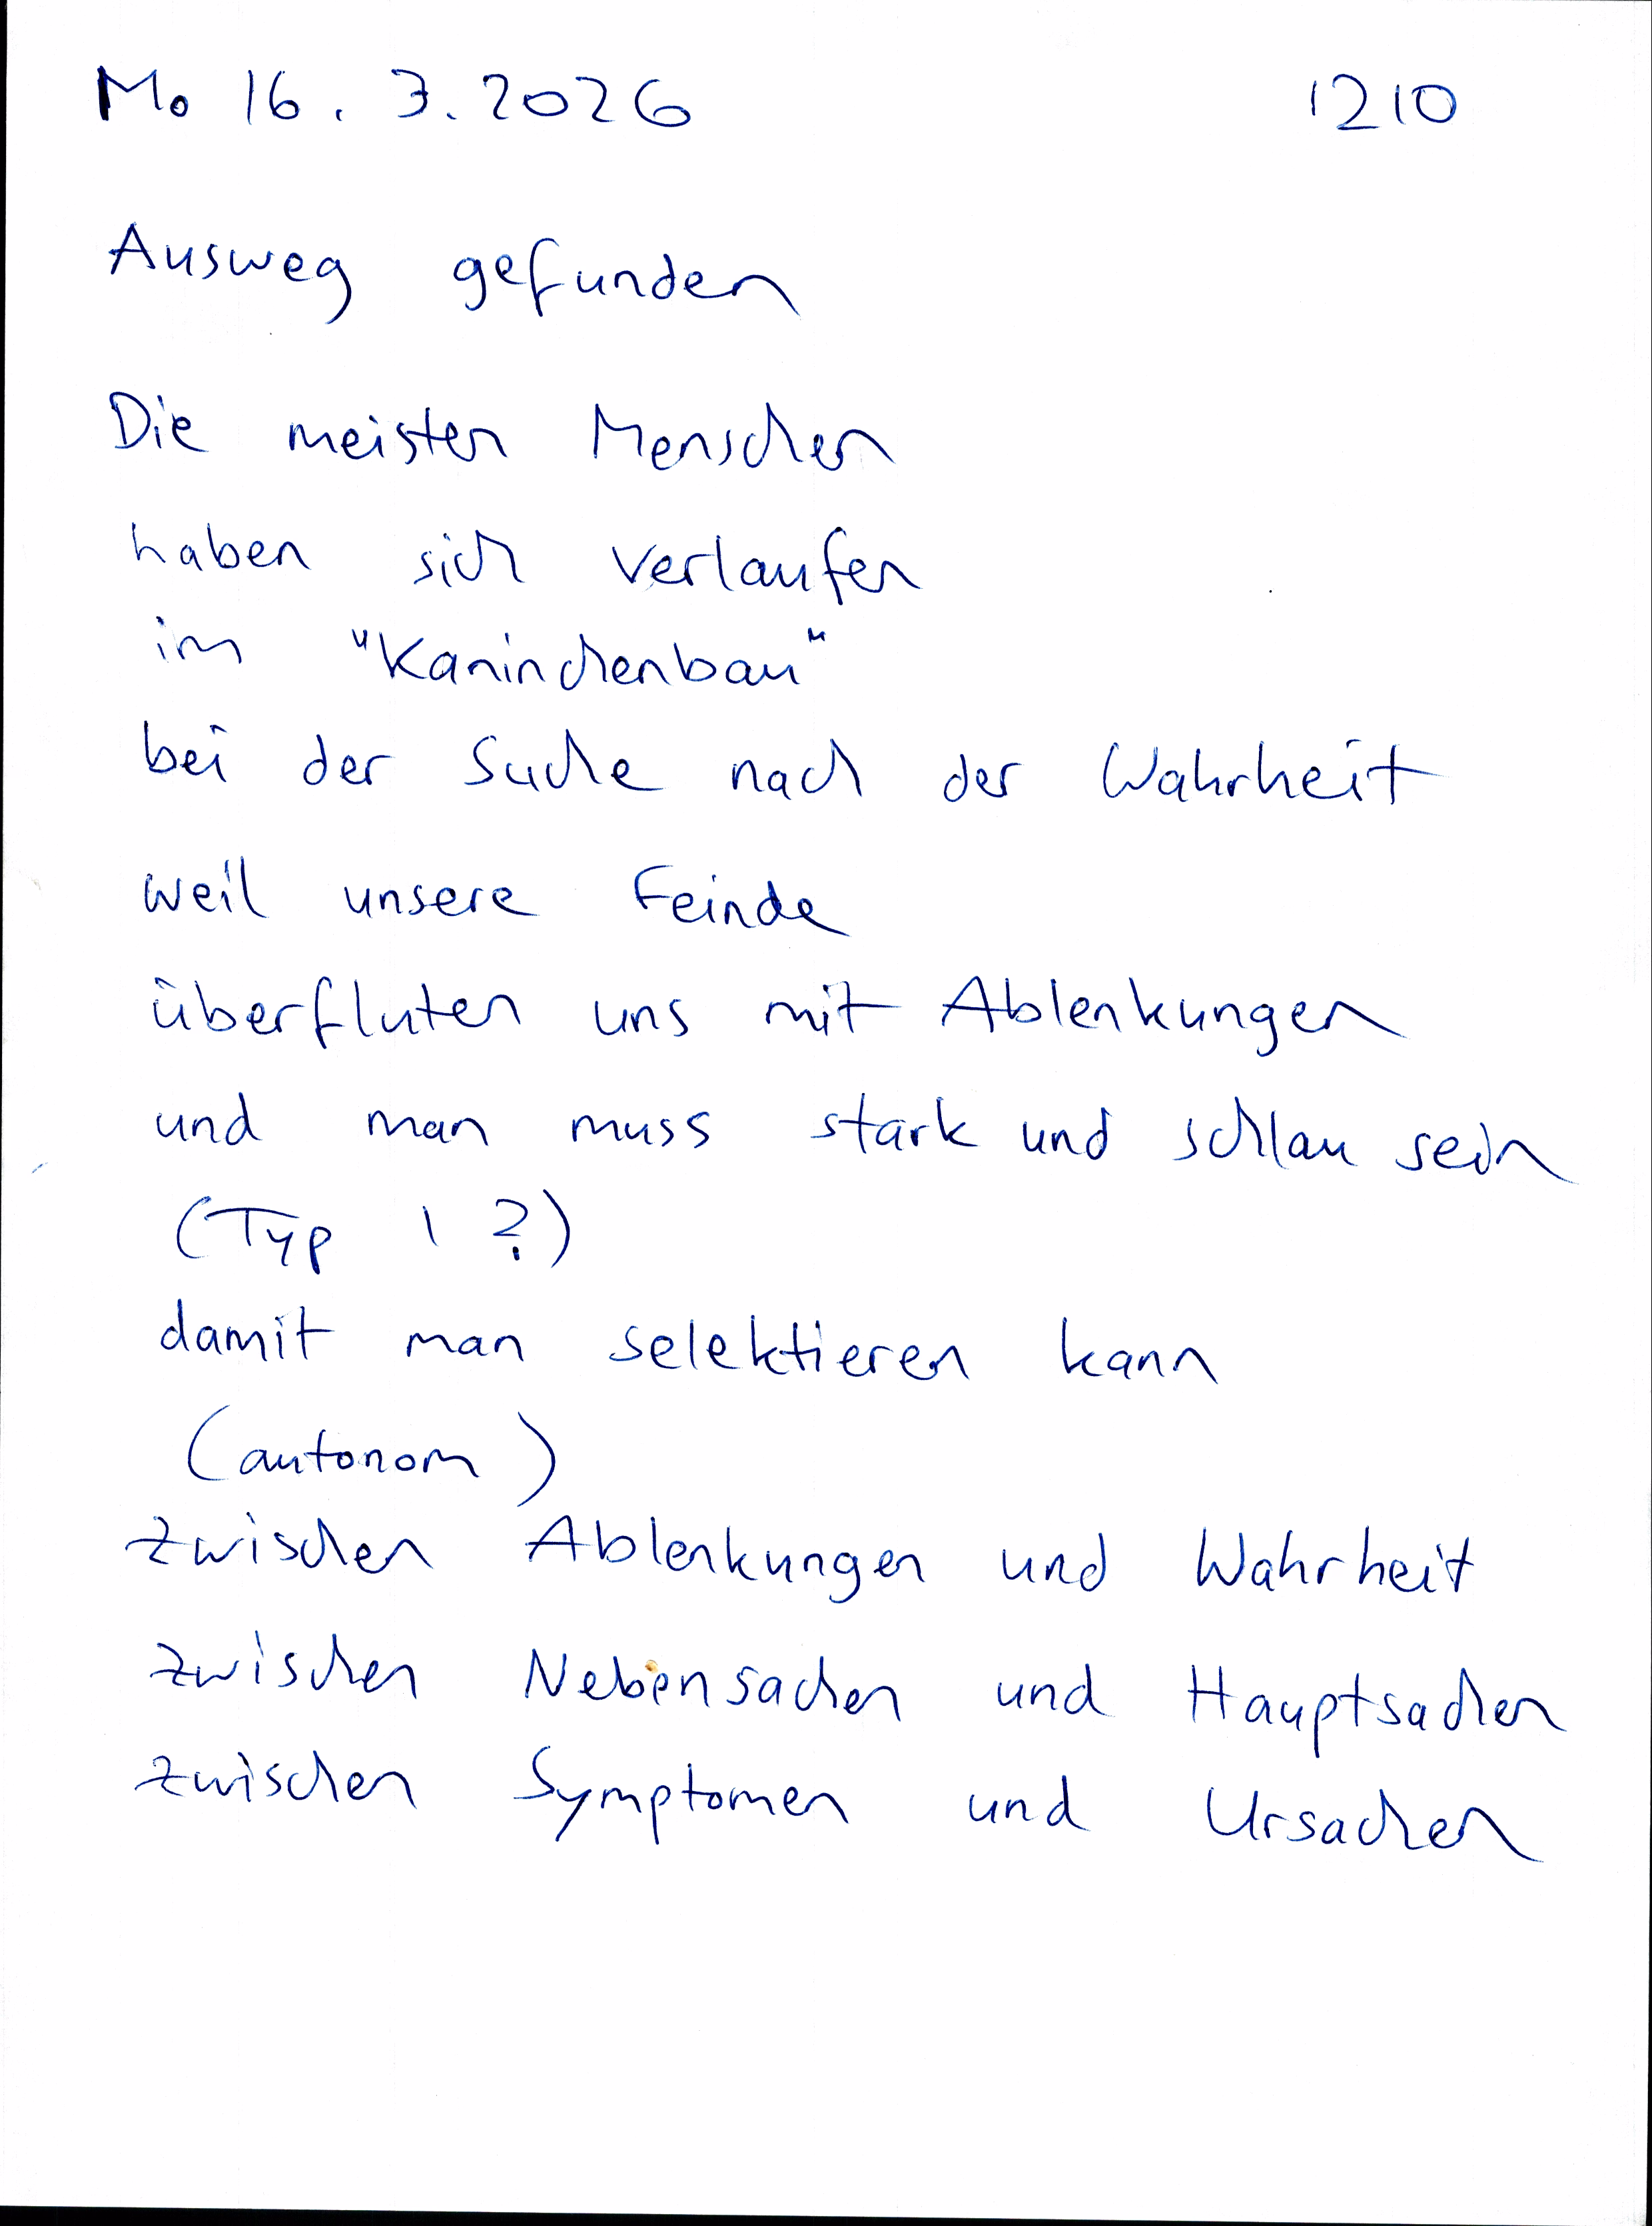 Mo 16.3.2026 1210
Ausweg gefunden
Die meisten Menschen
haben sich verlaufen
im "Kaninchenbau"
bei der Suche nach der Wahrheit
weil unsere Feinde
überfluten uns mit Ablenkungen
und man muss stark und schlau sein
(Typ 1 ?)
damit man selektieren kann
(autonom)
zwischen Ablenkungen und Wahrheit
zwischen Nebensachen und Hauptsachen
zwischen Symptomen und Ursachen